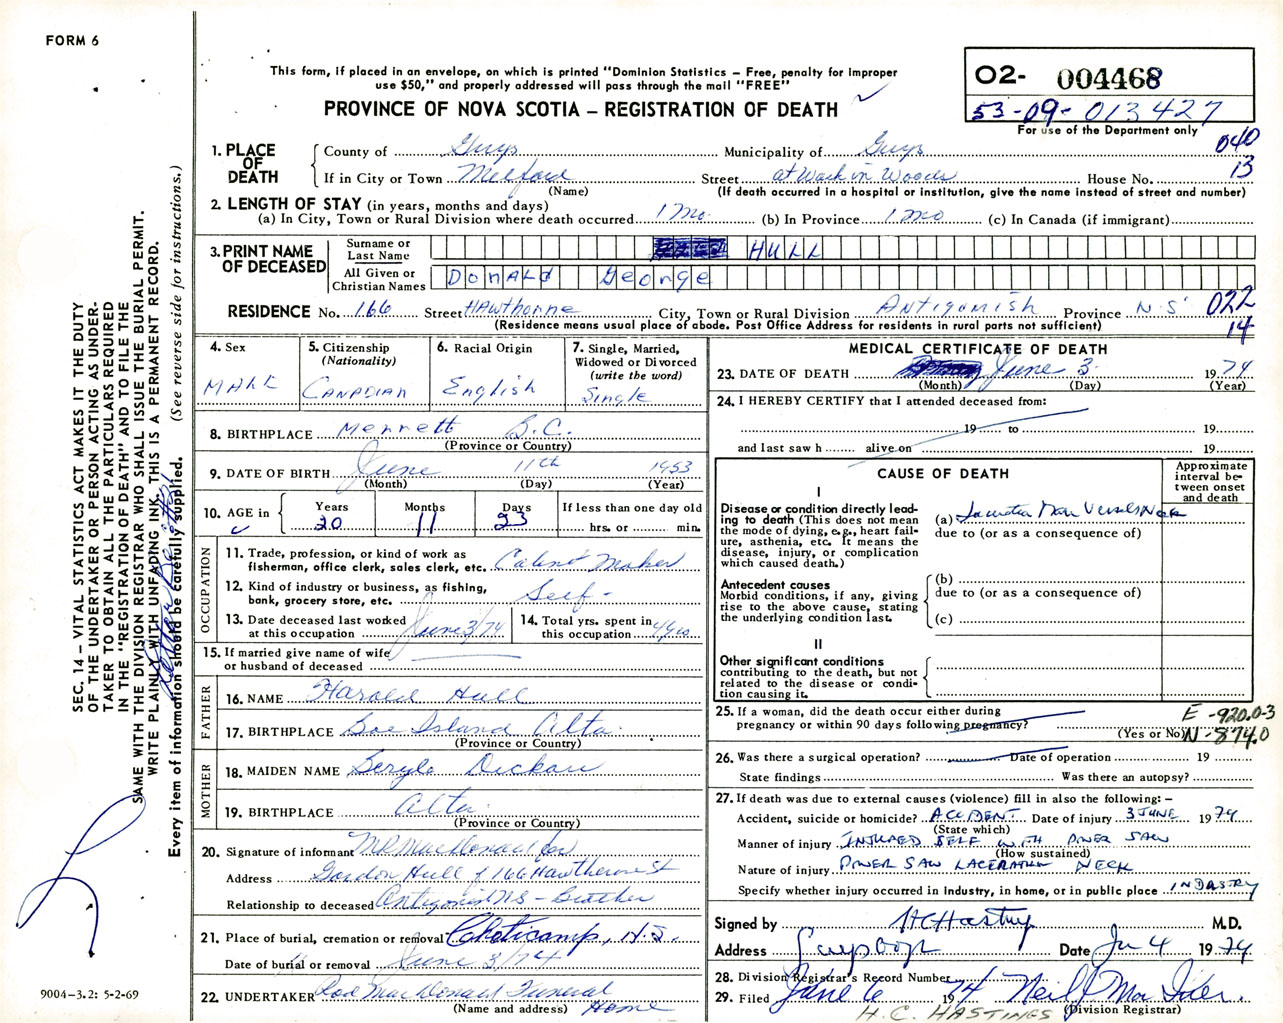 FORM 6
This form, if placed in an envelope, on which is printed "Dominion Statistics – Free, penalty for improper
use $50," and properly addressed will pass through the mail "FREE"
PROVINCE OF NOVA SCOTIA – REGISTRATION OF DEATH
02- 004468
53-09-013427
For use of the Department only
040
13
1. PLACE OF DEATH
County of Guys Municipality of Guys
If in City or Town Melford Street at Work in Woods House No.
(Name) (If death occurred in a hospital or institution, give the name instead of street and number)
2. LENGTH OF STAY (in years, months and days)
(a) In City, Town or Rural Division where death occurred 1 Mo. (b) In Province 1 Mo (c) In Canada (if immigrant)
3. PRINT NAME OF DECEASED
Surname or Last Name HULL
All Given or Christian Names DONALd GEorgE
RESIDENCE No. 166 Street HAwthorne City, Town or Rural Division Antigonish Province N.S.
022
14
(Residence means usual place of abode. Post Office Address for residents in rural parts not sufficient)
4. Sex
MALE
5. Citizenship
(Nationality)
CANADIAN
6. Racial Origin
English
7. Single, Married,
Widowed or Divorced
(write the word)
Single
8. BIRTHPLACE Merrett B.C.
(Province or Country)
9. DATE OF BIRTH June 11th 1953
(Month) (Day) (Year)
10. AGE in
Years Months Days If less than one day old
20 11 23 hrs. or min.
OCCUPATION
11. Trade, profession, or kind of work as
fisherman, office clerk, sales clerk, etc. Cabinet Maker
12. Kind of industry or business, as fishing,
bank, grocery store, etc. Self -
13. Date deceased last worked
at this occupation June 3/74
14. Total yrs. spent in
this occupation 4 yrs
15. If married give name of wife
or husband of deceased
FATHER
16. NAME Harold Hull
17. BIRTHPLACE Boe Island Alta.
(Province or Country)
MOTHER
18. MAIDEN NAME Beryle Dickau
19. BIRTHPLACE Alta.
(Province or Country)
20. Signature of informant MR MacDonald for
Address Gordon Hull of 166 Hawthorne St
Relationship to deceased Antigonish NS - Brother
21. Place of burial, cremation or removal Cheticamp, N.S.
Date of burial or removal June 3/74
22. UNDERTAKER Rod MacDonald Funeral
(Name and address) Home
MEDICAL CERTIFICATE OF DEATH
23. DATE OF DEATH June 3 1974
(Month) (Day) (Year)
24. I HEREBY CERTIFY that I attended deceased from:
19 to 19
and last saw h alive on 19
CAUSE OF DEATH
Approximate
interval be-
tween onset
and death
I
Disease or condition directly lead-
ing to death (This does not mean
the mode of dying, e.g., heart fail-
ure, asthenia, etc. It means the
disease, injury, or complication
which caused death.)
(a) Vessels Neck
due to (or as a consequence of)
Antecedent causes
Morbid conditions, if any, giving
rise to the above cause, stating
the underlying condition last.
(b)
due to (or as a consequence of)
(c)
II
Other significant conditions
contributing to the death, but not
related to the disease or condi-
tion causing it.
25. If a woman, did the death occur either during
pregnancy or within 90 days following pregnancy?
(Yes or No)
E-920.0-3
N-874.0
26. Was there a surgical operation? Date of operation 19
State findings Was there an autopsy?
27. If death was due to external causes (violence) fill in also the following: –
Accident, suicide or homicide? ACCIDENT Date of injury 3 JUNE 1974
(State which)
Manner of injury INJURED SELF WITH POWER SAW
(How sustained)
Nature of injury POWER SAW LACERATION NECK
Specify whether injury occurred in industry, in home, or in public place INDUSTRY
Signed by H C Hastings M.D.
Address Guysboro Date Jn 4 1974
28. Division Registrar's Record Number
29. Filed June 6 1974
(Division Registrar)
H. C. HASTINGS
SEC. 14 – VITAL STATISTICS ACT MAKES IT THE DUTY
OF THE UNDERTAKER OR PERSON ACTING AS UNDER-
TAKER TO OBTAIN ALL THE PARTICULARS REQUIRED
IN THE "REGISTRATION OF DEATH" AND TO FILE THE
SAME WITH THE DIVISION REGISTRAR WHO SHALL ISSUE THE BURIAL PERMIT.
WRITE PLAINLY WITH UNFADING INK. THIS IS A PERMANENT RECORD.
Every item of information should be carefully supplied. (See reverse side for instructions.)
9004-3.2: 5-2-69